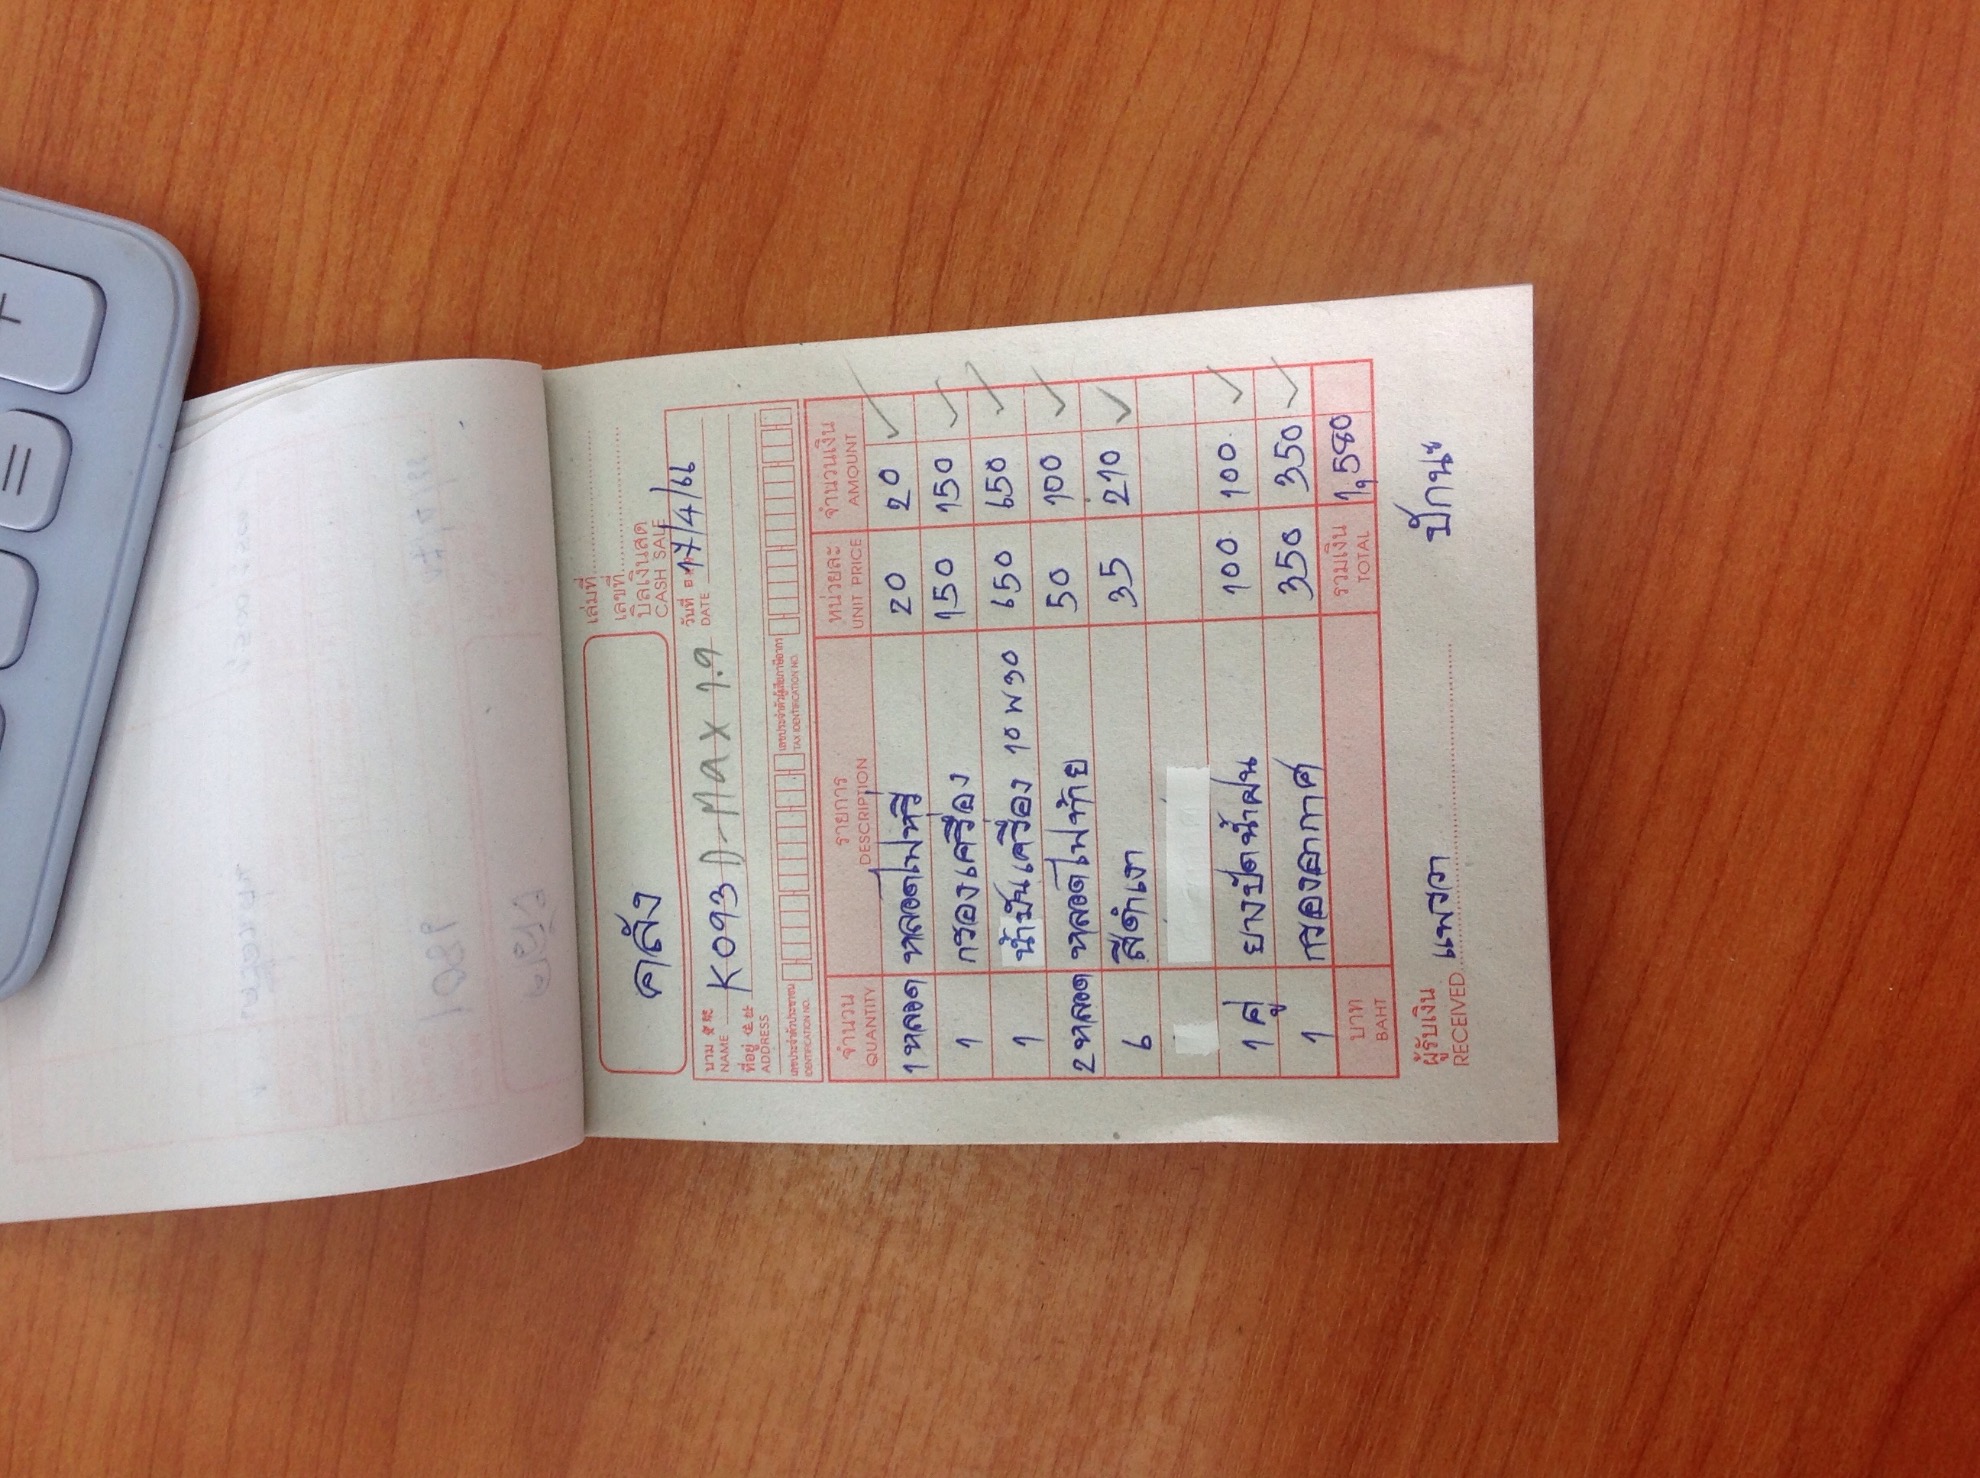 เล่มที่
เลขที่
คลัง
บิลเงินสด
CASH SALE
นาม NAME K093 D-MAX 1.9 วันที่ DATE 17/4/66
ที่อยู่ ADDRESS
เลขประจำตัวประชาชน IDENTIFICATION NO. เลขประจำตัวผู้เสียภาษีอากร TAX IDENTIFICATION NO.
จำนวน รายการ หน่วยละ จำนวนเงิน
QUANTITY DESCRIPTION UNIT PRICE AMOUNT
1 หลอด หลอดไฟหรี่ 20 20
1 กรองเครื่อง 150 150
1 น้ำมันเครื่อง 10W30 650 650
2 หลอด หลอดไฟท้าย 50 100
6 สีดำเงา 35 210
1 คู่ ยางปัดน้ำฝน 100. 100.
1 กรองอากาศ 350 350
บาท รวมเงิน 1,580
BAHT TOTAL
ผู้รับเงิน RECEIVED แพรวา